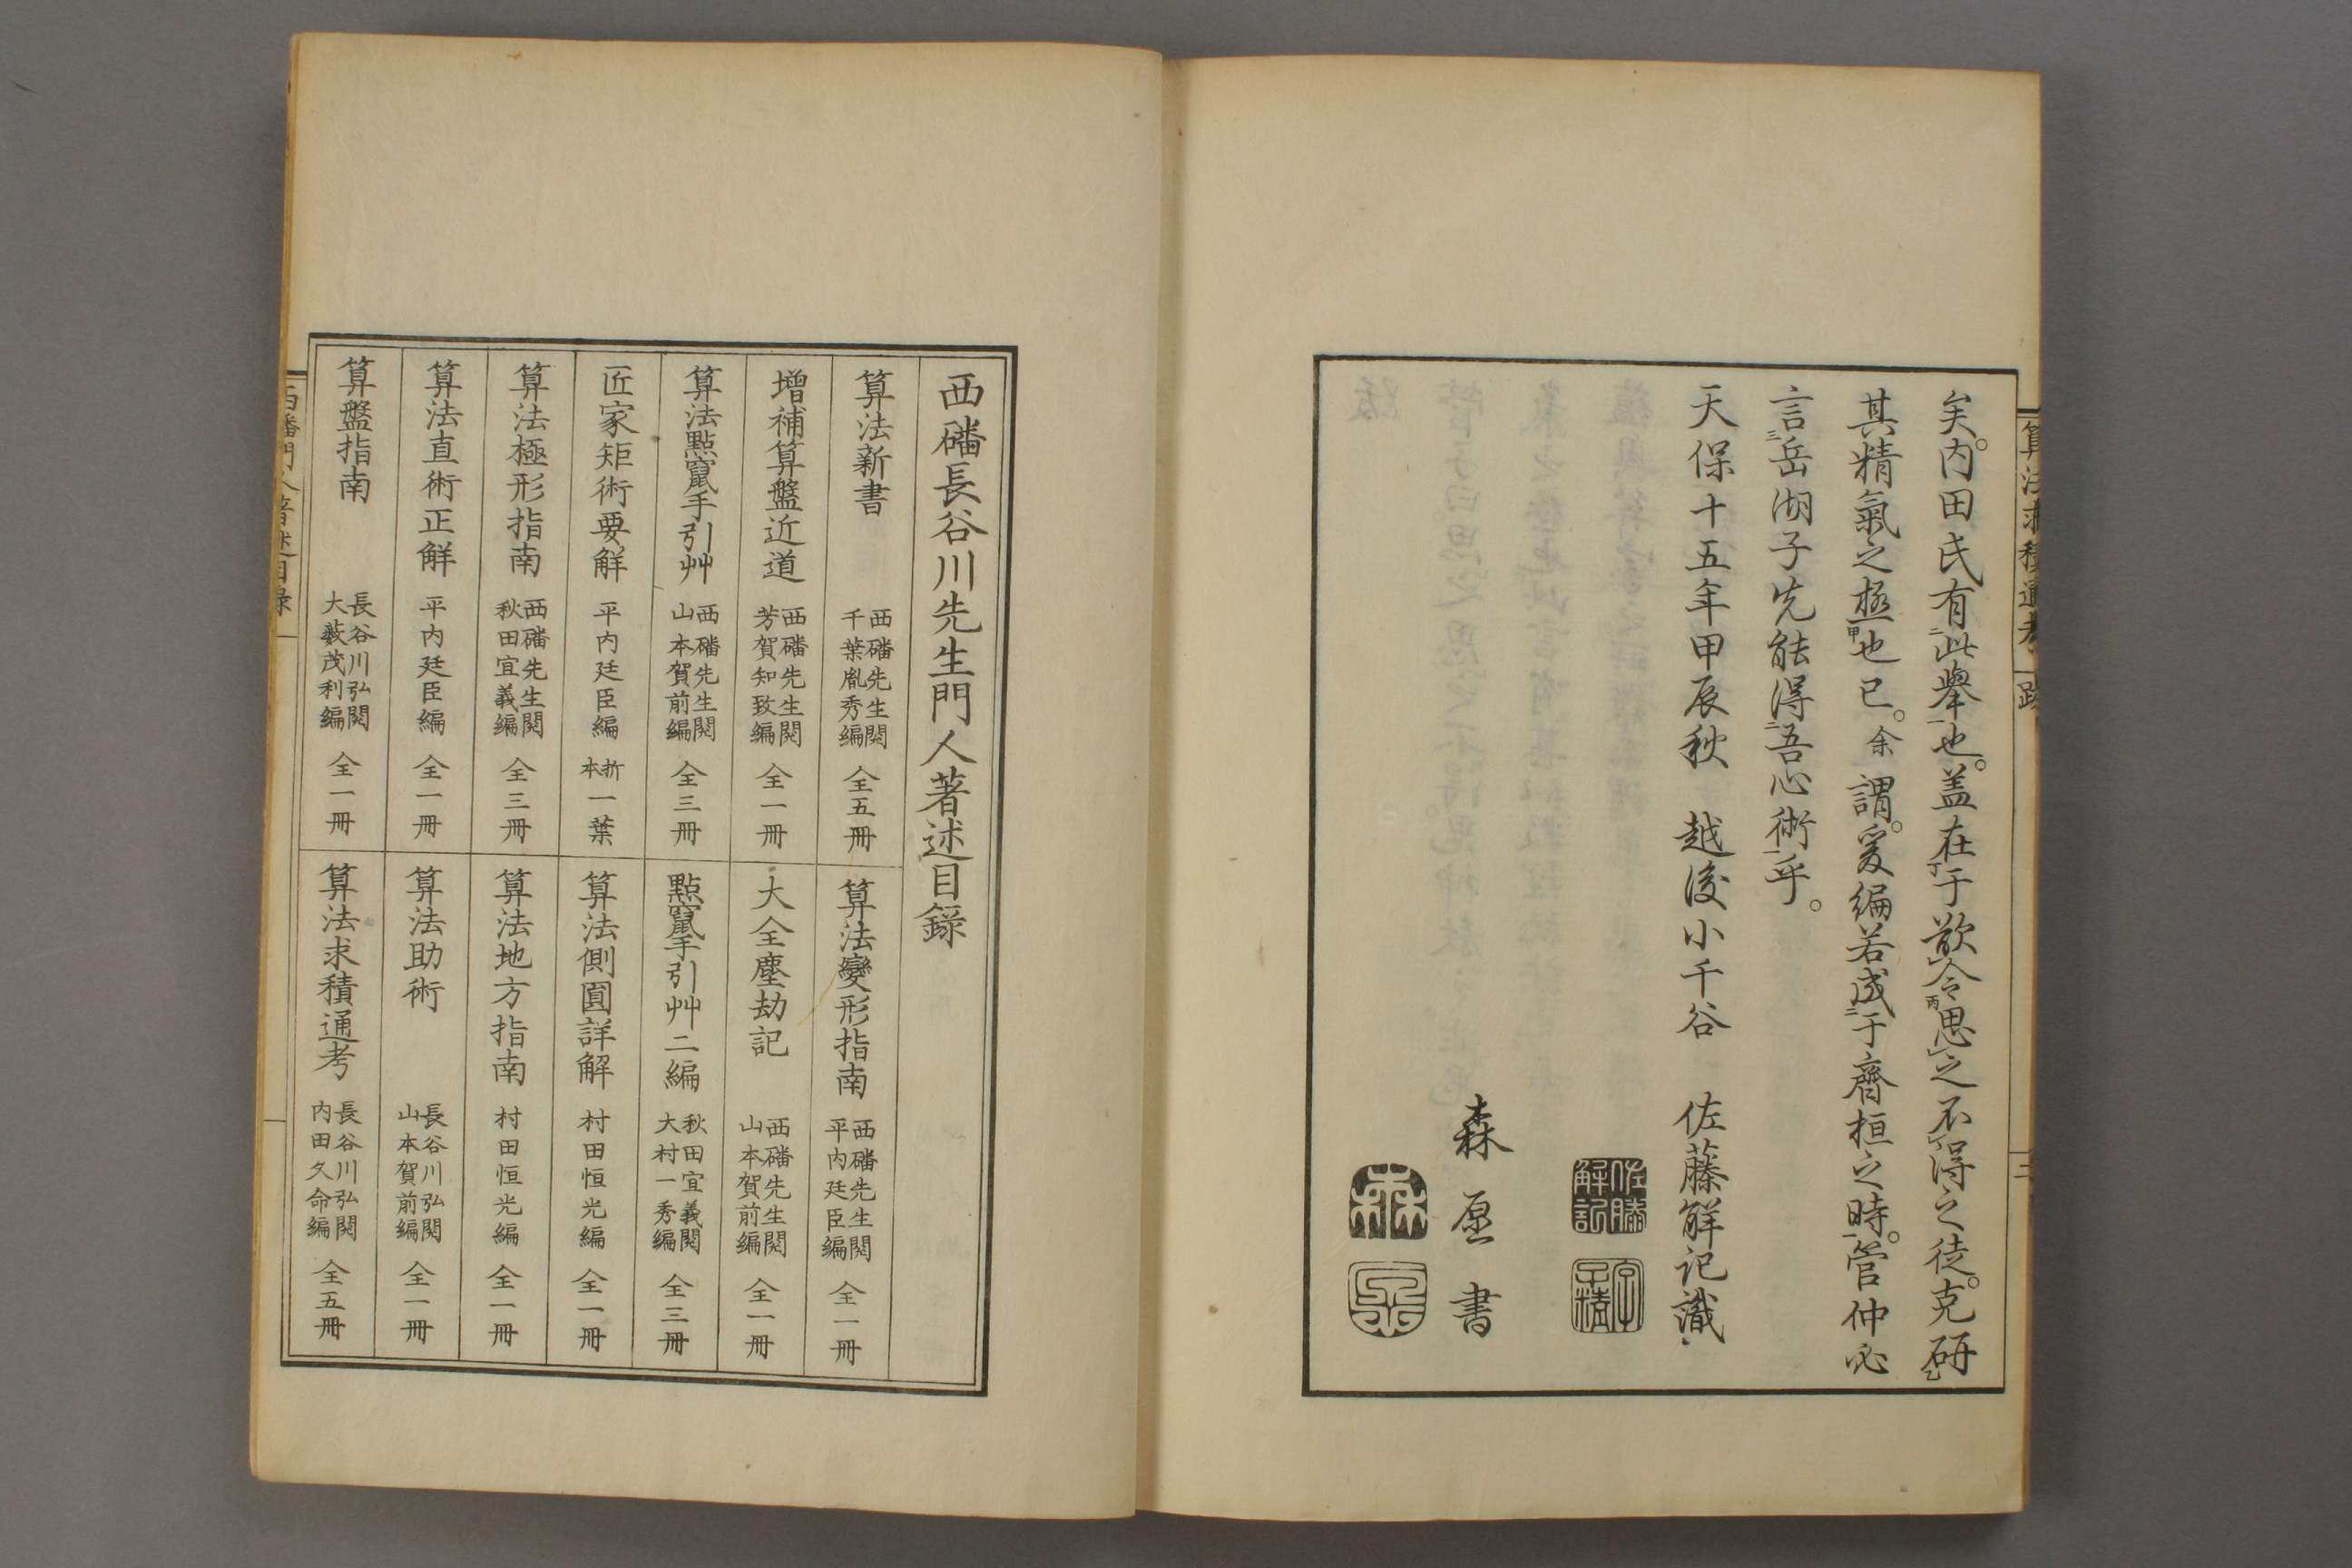 矣。内田氏有二此舉一也。盖在丁于歆令丙思之不得之徒。克研乙
其精氣之極甲也已。余謂。爰編若成二于齊桓之時一。管仲必
言三岳湖子先能得二吾心術一乎。
天保十五年甲辰秋 越後小千谷 佐藤觧記識
佐藤解記
字子精
森原書
算法求積通考 跋
西磻長谷川先生門人著述目録
算法新書 西磻先生閲 千葉胤秀編 全五冊
算法變形指南 西磻先生閲 平内廷臣編 全一冊
增補算盤近道 西磻先生閲 芳賀知致編 全一冊
大全塵劫記 西磻先生閲 山本賀前編 全一冊
算法點竄手引艸 西磻先生閲 山本賀前編 全三冊
點竄手引艸二編 秋田宜義閲 大村一秀編 全三冊
匠家矩術要觧 平内廷臣編 折本一葉
算法側圓詳解 村田恒光編 全一冊
算法極形指南 西磻先生閲 秋田宜義編 全三冊
算法地方指南 村田恒光編 全一冊
算法直術正觧 平内廷臣編 全一冊
算法助術 長谷川弘閲 山本賀前編 全一冊
算盤指南 長谷川弘閲 大薮茂利編 全一冊
算法求積通考 長谷川弘閲 内田久命編 全五冊
西磻門人著述目録